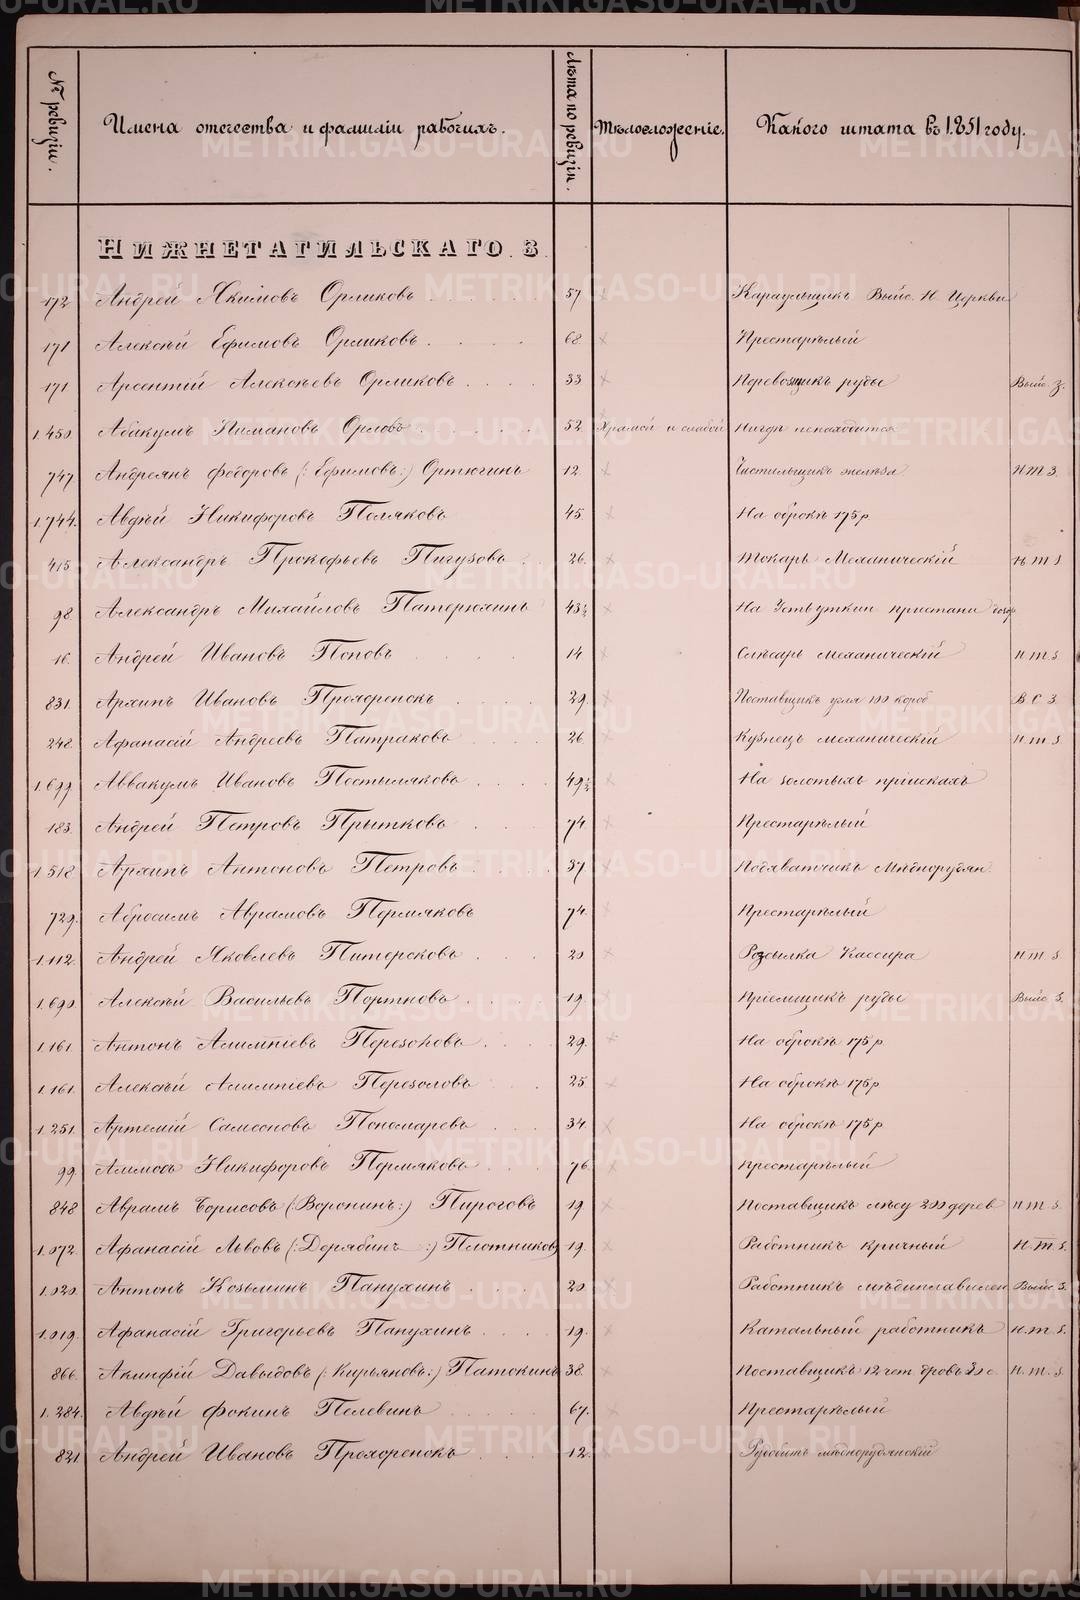 № ревизіи.
Имена отечества и фамиліи рабочихъ.
Лѣта по ревизіи.
Тѣлосложеніе.
Какого штата въ 1851 году.
НИЖНЕТАГИЛЬСКАГО З.
172 Андрей Якимовъ Орликовъ 57 Караульщикъ Выйс. Н. Церкви
171 Алексѣй Ефимовъ Орликовъ 68 Престарѣлый
171 Арсентій Алексѣевъ Орликовъ 33 Перевощикъ руды Выйс. З.
1.450 Абакумъ Орловъ 52 Хромой и слабой Нигдѣ ненаходится
747 Андреянъ Федоровъ (:Ефимовъ:) Ортюгинъ 12 Чистильщикъ желѣза Н.Т.З.
1.744. Авдѣй Никифоровъ Поляковъ 45 На оброкѣ 175 р.
415 Александръ Прокофьевъ Пигузовъ 26 Токарь Механическій Н.Т.З.
98. Александръ Михайловъ Патерюхинъ 43½ На Устьуткин пристани
16. Андрей Ивановъ Поповъ 14 Слѣсарь механическій Н.Т.З.
831. Архипъ Ивановъ Прохоренокъ 29. Поставщикъ угля 100 короб В С З.
248. Афанасій Андреевъ Патраковъ 26 Кузнецъ механическій Н.Т.З.
1.699 Аввакумъ Ивановъ Постыляковъ 49½ На золотыхъ пріискахъ
183. Андрей Петровъ Прытковъ 74. Престарѣлый
1.518 Архипъ Антоновъ Петровъ 37 Подхватчикъ Мѣднорудян.
729. Абросимъ Аврамовъ Пермяковъ 74. Престарѣлый
1.112. Андрей Яковлевъ Питерсковъ 20 Розсылка Кассира Н.Т.З.
1.690. Алексѣй Васильевъ Портновъ 19. Пріемщикъ руды Выйс З.
1.161. Антонъ Алимпіевъ Перезоловъ 29. На оброкѣ 175 р
1.161. Алексѣй Алимпіевъ Перезоловъ 25 На оброкѣ 175 р
1.251. Артемій Самсоновъ Пономаревъ 34. На оброкѣ 175 р
99. Никифоровъ Пермяковъ 76. Престарѣлый
848 Аврамъ Борисовъ (:Воронинъ:) Пироговъ 19 Поставщикъ лѣсу 200 дерев Н.Т.З.
1.072. Афанасій Львовъ (:Дерябинъ:) Плотниковъ 19. Работникъ кричный Н.Т.З.
1.020. Антонъ Козьминъ Панухинъ 20 Работникъ мѣдиплавилен Выйс З.
1.019. Афанасій Григорьевъ Панухинъ 19. Катальный работникъ Н.Т.З.
866. Акинфій Давыдовъ (:Кирьяновъ:) Патокинъ 38. Поставщикъ 12 чет. дровъ Н.Т.З.
1.284. Авдѣй Фокинъ Пелевинъ 67. Престарѣлый
821 Андрей Ивановъ Прохоренокъ 12 Рудобитъ мѣднорудянскій
METRIKI.GASO-URAL.RU